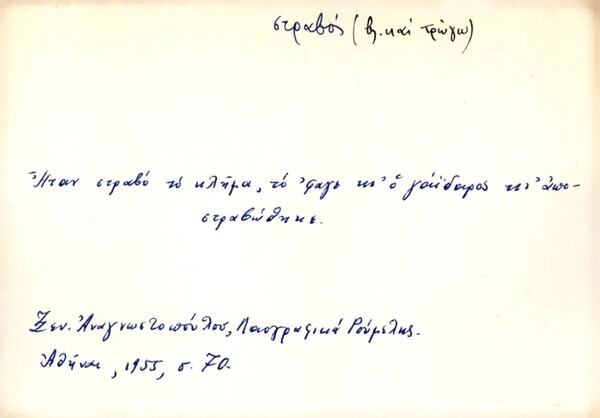 στραβός (βλ. καί τρώγω)
Ἦταν στραβό τό κλῆμα, τό ᾽φαγε κι᾽ ὁ γάϊδαρος κι᾽ ἀπο-
στραβώθηκε.
Ξεν. Ἀναγνωστοπούλου, Λαογραφικά Ρούμελης.
Ἀθῆναι, 1955, σ. 70.